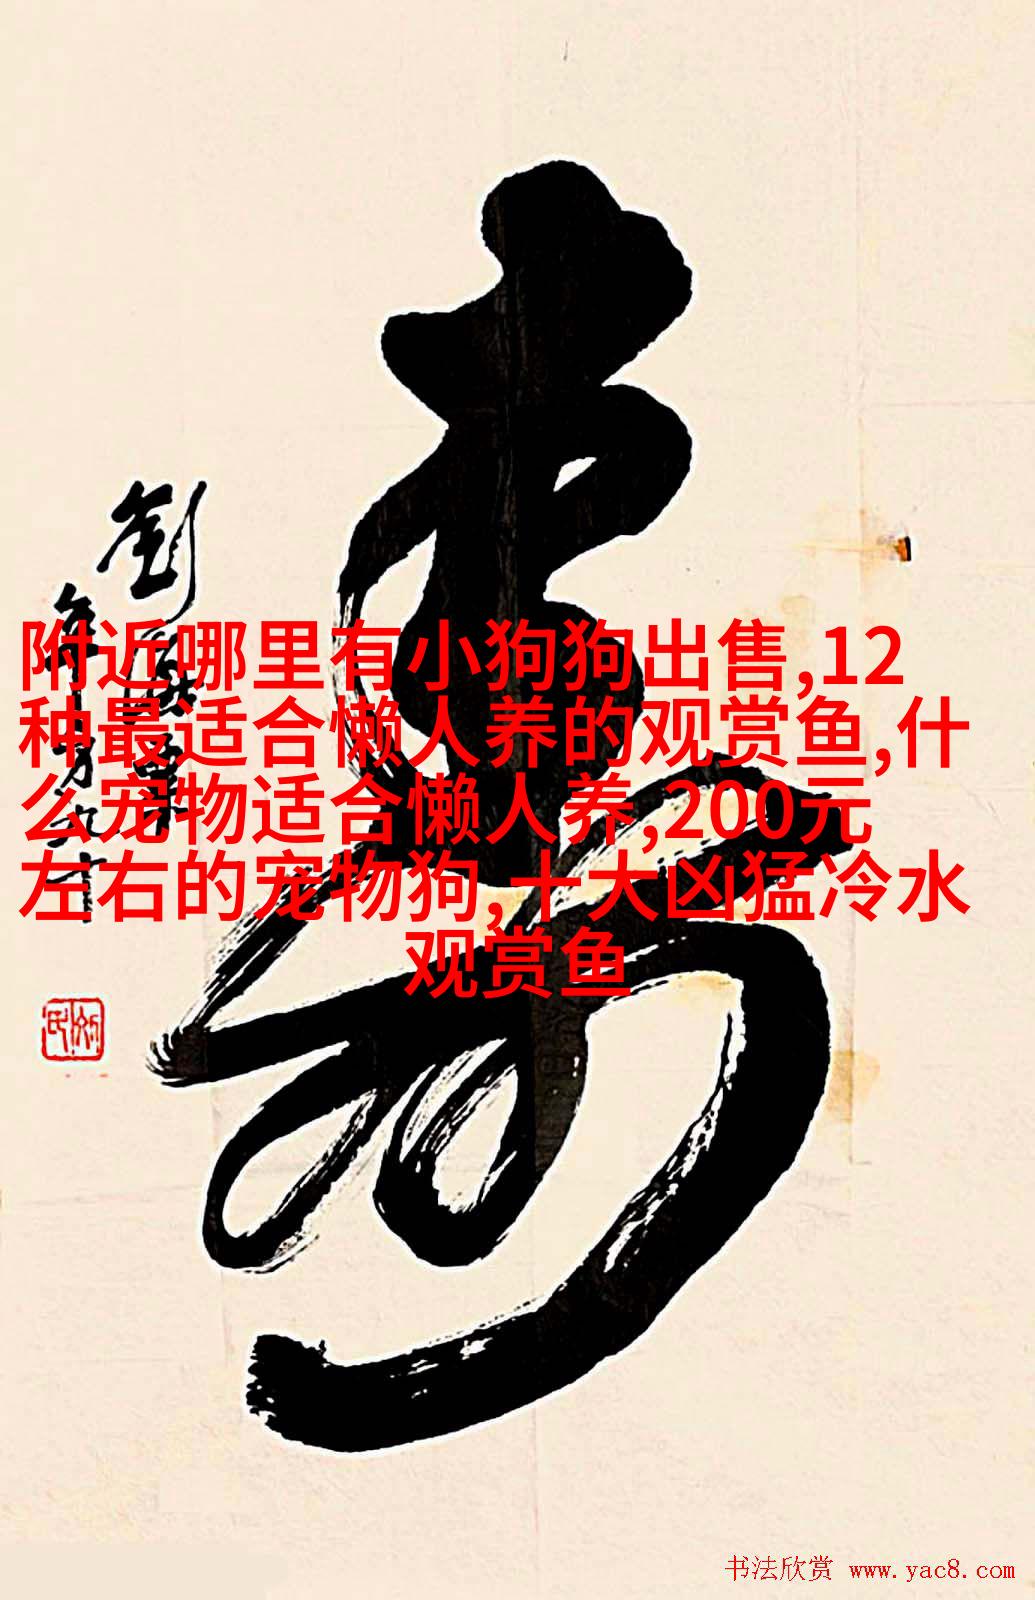 寿
劉
附近哪里有小狗狗出售,12
种最适合懒人养的观赏鱼,什
么宠物适合懒人养,200元
左右的宠物狗,十大凶猛冷水
观赏鱼
书法欣赏 www.yac8.com